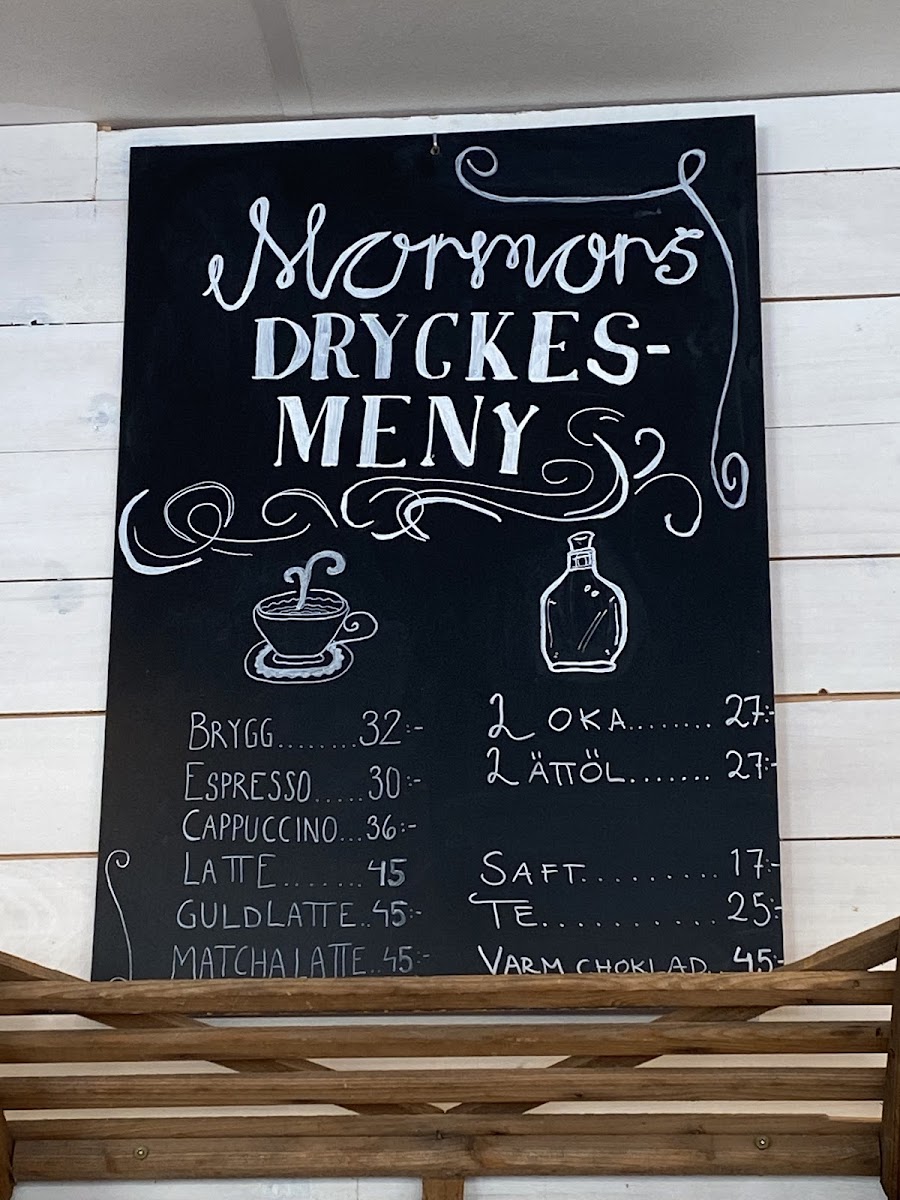 Mormors
DRYCKES-
MENY
BRYGG........32:-
ESPRESSO.....30:-
CAPPUCCINO...36:-
LATTE........45
GULDLATTE..45:-
MATCHALATTE..45:-
LOKA........27:-
LÄTTÖL.......27:-
SAFT..........17:-
TE............25:-
VARM CHOKLAD..45:-